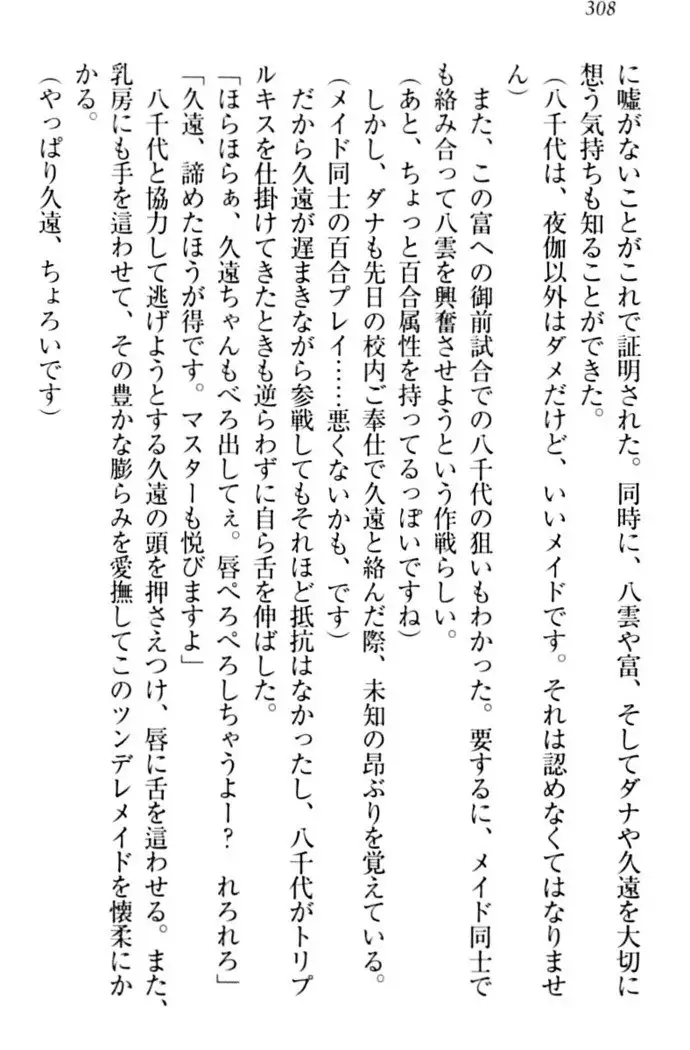 308
に嘘がないことがこれで証明された。同時に、八雲や富、そしてダナや久遠を大切に
想う気持ちも知ることができた。
(八千代は、夜伽以外はダメだけど、いいメイドです。それは認めなくてはなりませ
ん)
また、この富への御前試合での八千代の狙いもわかった。要するに、メイド同士で
も絡み合って八雲を興奮させようという作戦らしい。
(あと、ちょっと百合属性を持ってるっぽいですね)
しかし、ダナも先日の校内ご奉仕で久遠と絡んだ際、未知の昂ぶりを覚えている。
(メイド同士の百合プレイ……悪くないかも、です)
だから久遠が遅まきながら参戦してもそれほど抵抗はなかったし、八千代がトリプ
ルキスを仕掛けてきたときも逆らわずに自ら舌を伸ばした。
「ほらほらぁ、久遠ちゃんもべろ出してぇ。唇ぺろぺろしちゃうよー? れろれろ」
「久遠、諦めたほうが得です。マスターも悦びますよ」
八千代と協力して逃げようとする久遠の頭を押さえつけ、唇に舌を這わせる。また、
乳房にも手を這わせて、その豊かな膨らみを愛撫してこのツンデレメイドを懐柔にか
かる。
(やっぱり久遠、ちょろいです)